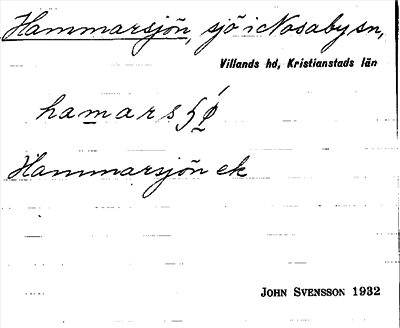 Hammarsjön, sjö i Nosaby sn,
Villands hd, Kristianstads län
Hammarsjön ek
JOHN SVENSSON 1932